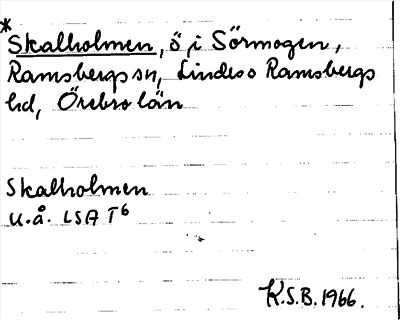 *
Skalholmen, ö i Sörmogen,
Ramsbergs sn, Lindes o Ramsbergs
hd, Örebro län
Skalholmen
u.å. LSA T6
K.S.B. 1966.